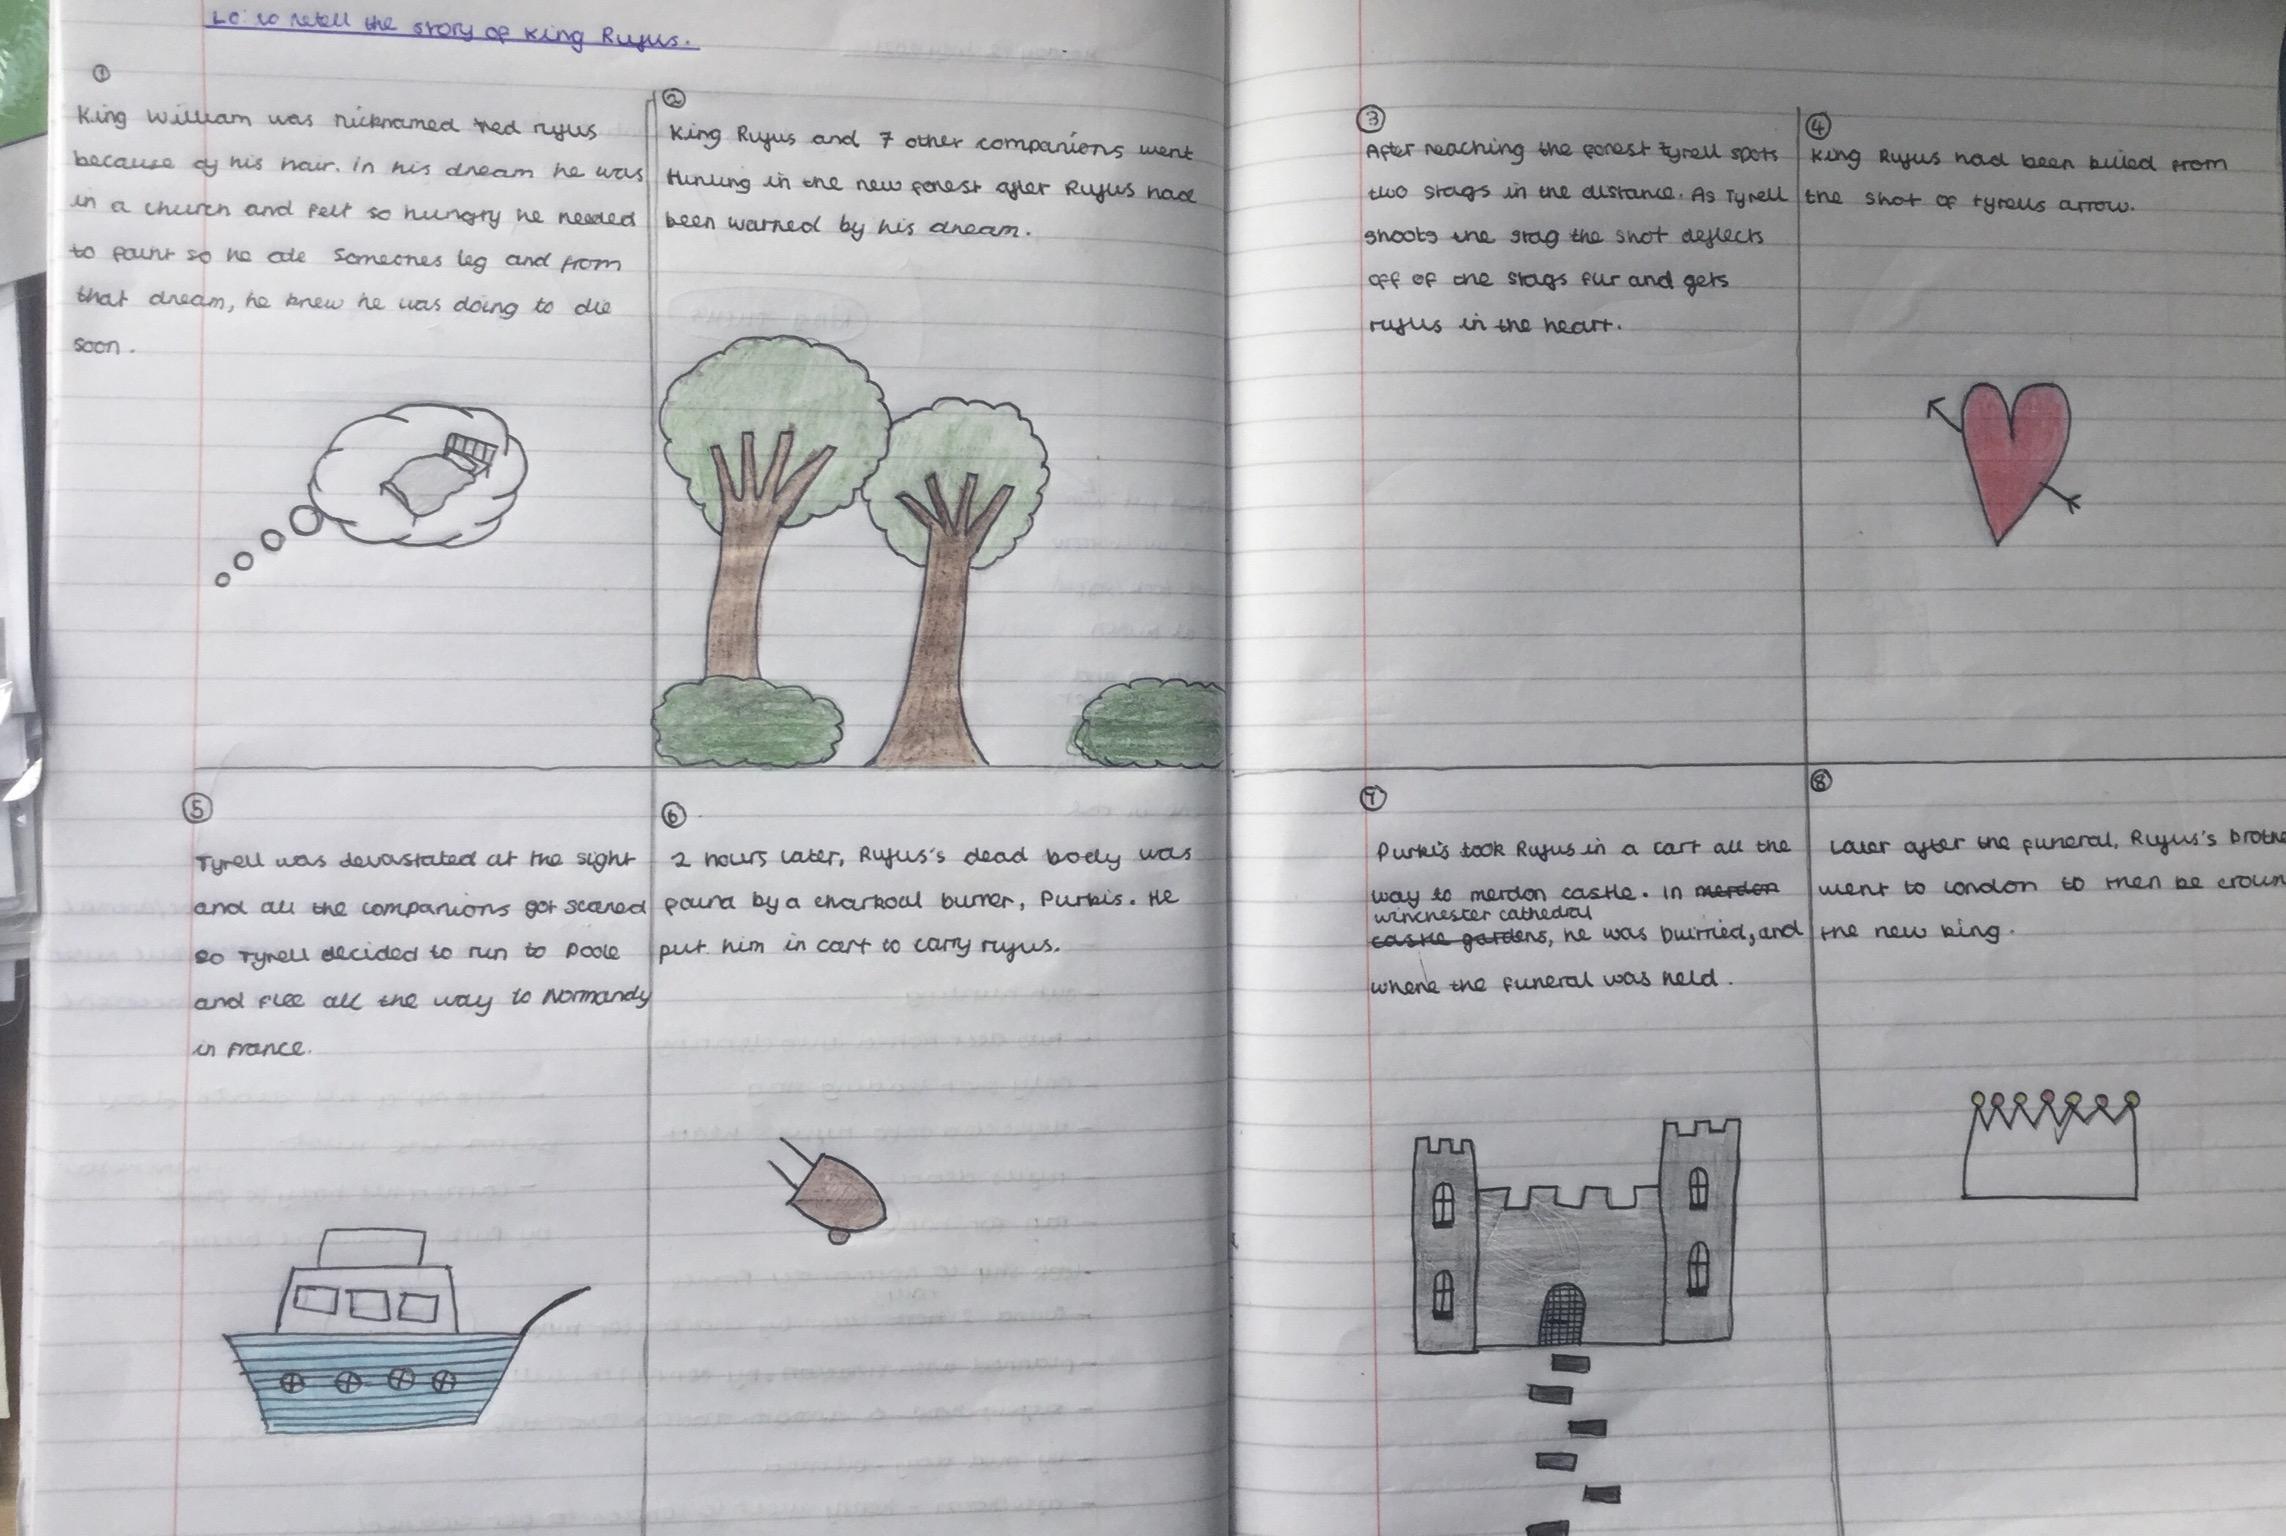 LC: to retell the story of King Rufus.
①
King William was nicknamed red rufus
because of his hair. in his dream he was
in a church and felt so hungry he needed
to faint so he ate someones leg and from
that dream, he knew he was doing to die
soon.
②
King Rufus and 7 other companions went
Hunting in the new forest after Rufus had
been warned by his dream.
③
After reaching the forest tyrell spots
two stags in the distance. As Tyrell
shoots the stag the shot deflects
off of the stags fur and gets
rufus in the heart.
④
King Rufus had been killed from
the shot of tyrells arrow.
⑤
Tyrell was devastated at the sight
and all the companions got scared
so Tyrell decided to run to Poole
and flee all the way to Normandy
in France.
⑥
2 hours later, Rufus's dead body was
found by a charkoal burner, Purkis. He
put him in cart to carry rufus.
⑦
Purkis took Rufus in a cart all the
way to merdon castle. In merdon
winchester cathedral
castle gardens, he was burried, and
where the funeral was held.
⑧
Later after the funeral, Rufus's brothe
went to London to then be crown
the new king.